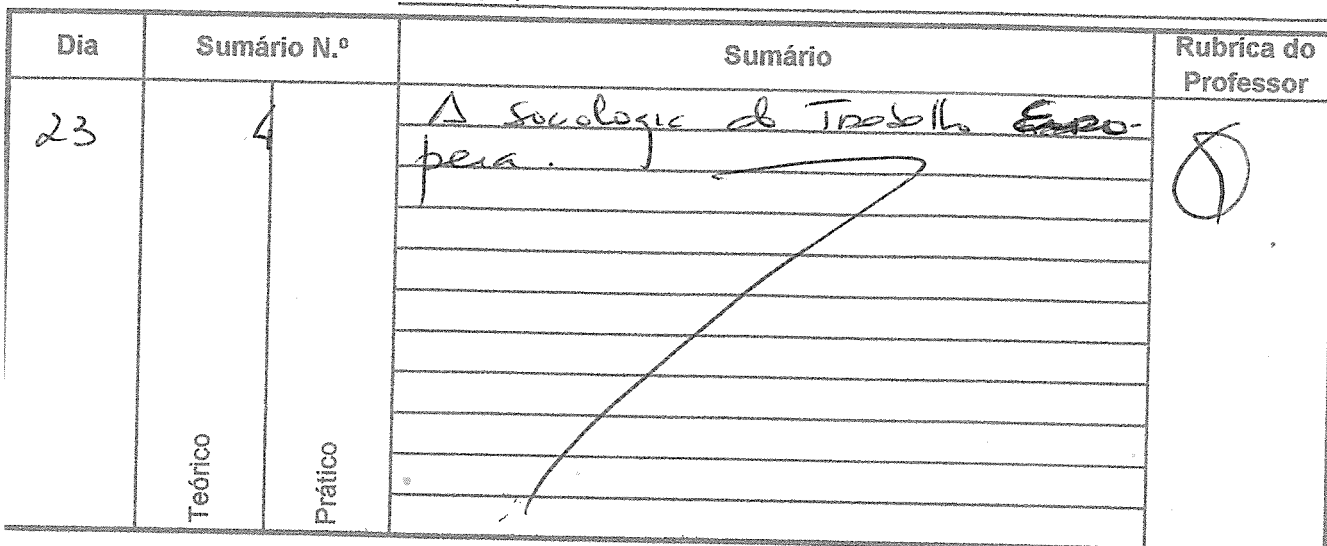 Dia Sumário N.º Sumário Rubrica do Professor
23 4 A Sociologia do Trabalho Euro-
peia.
Teórico Prático